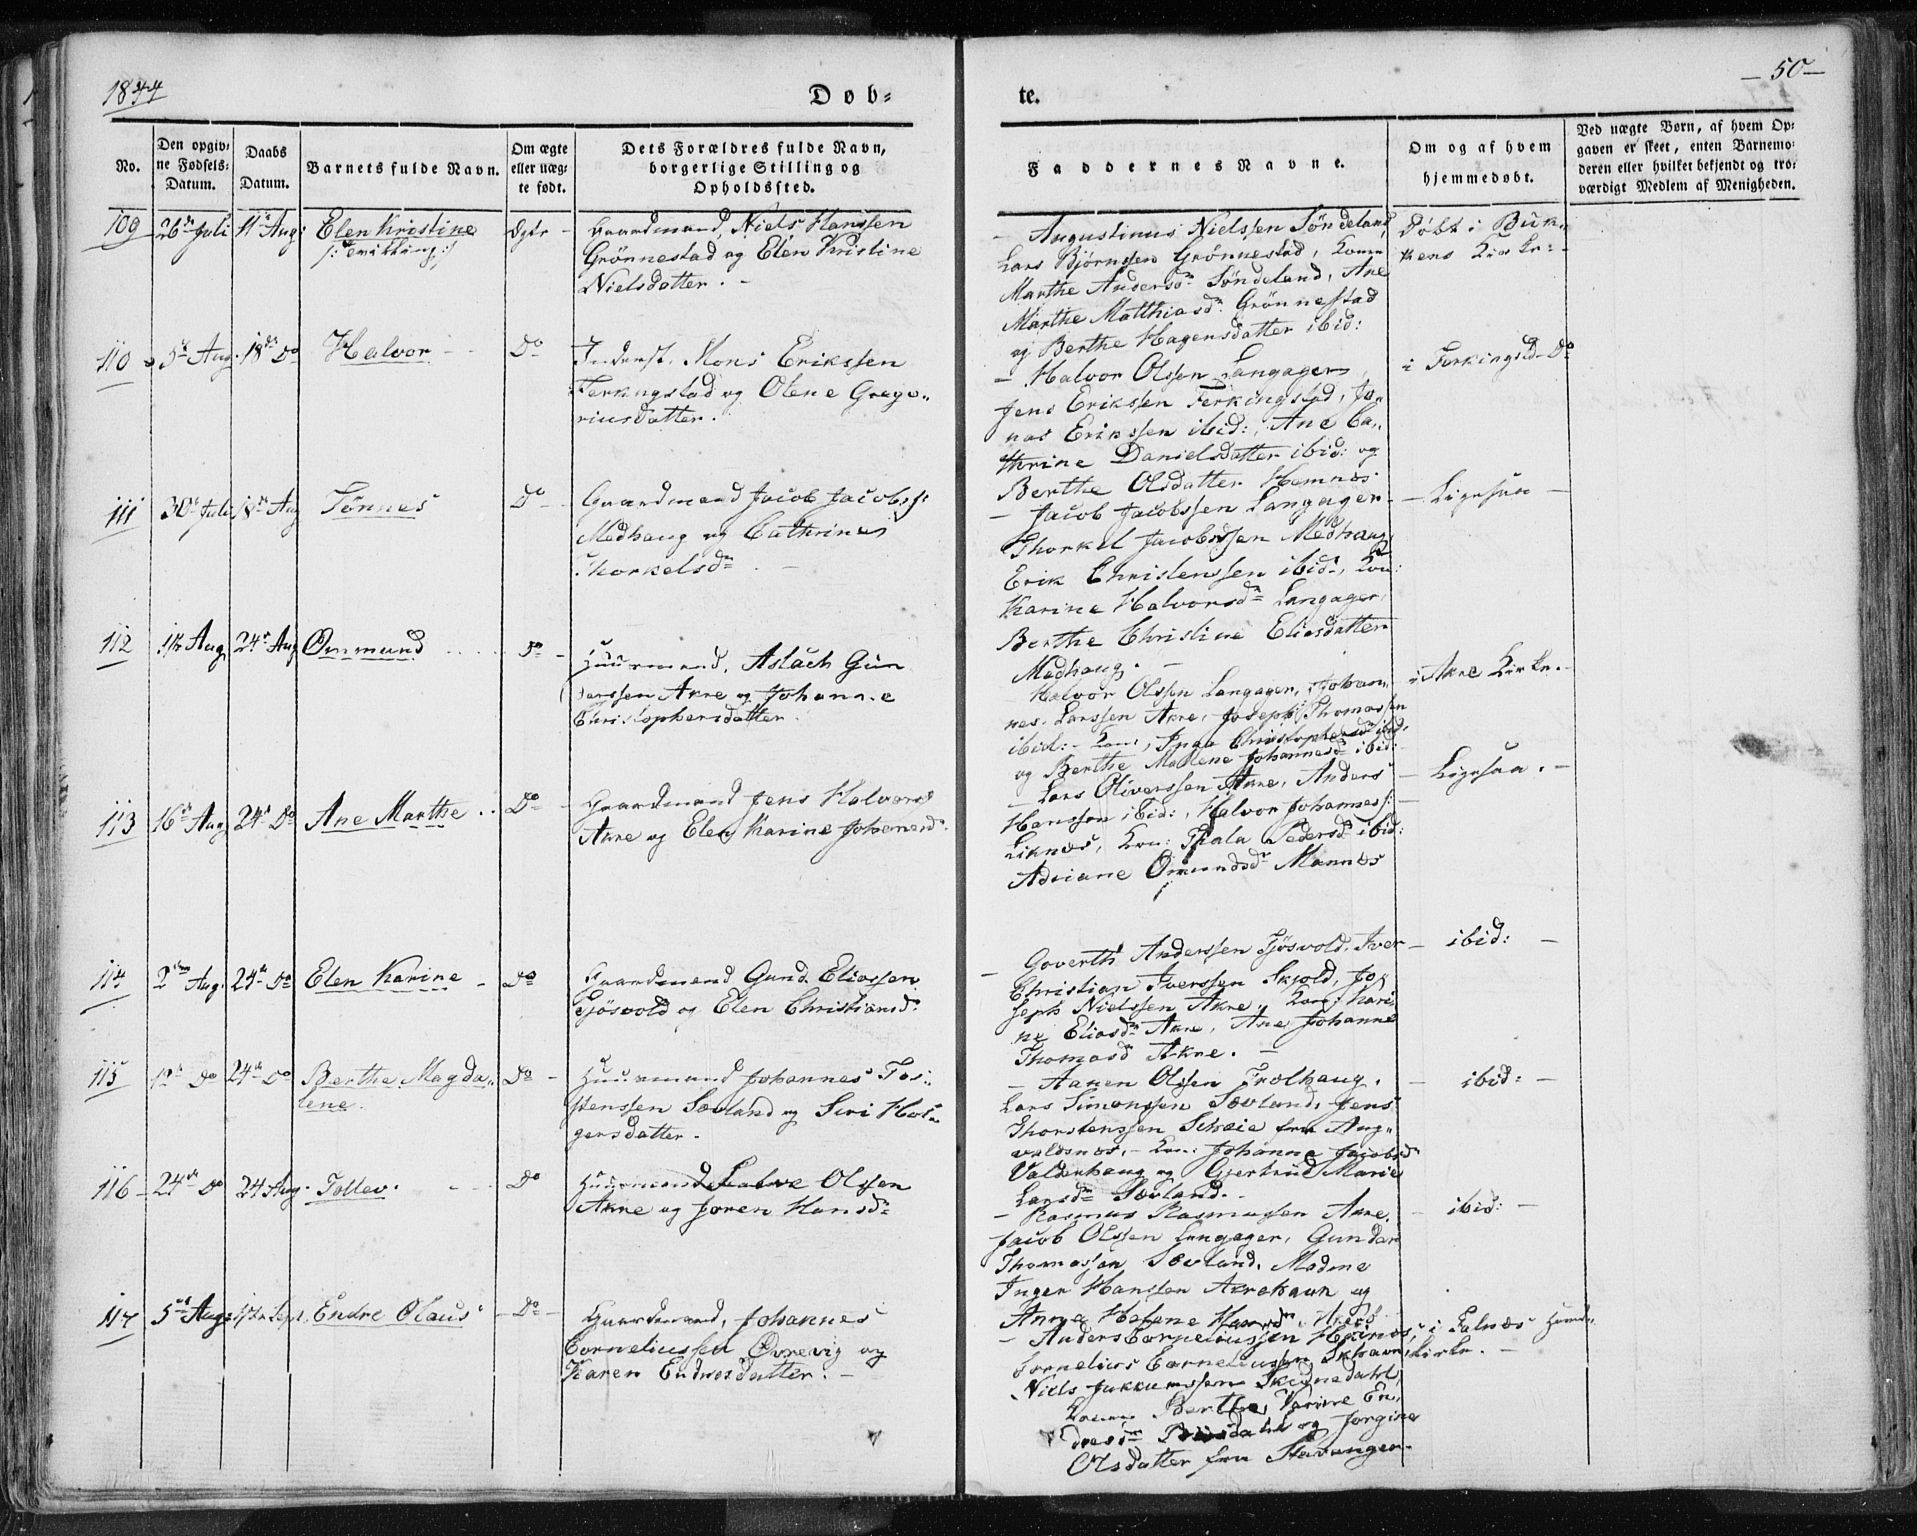 1844
Döb=
te.
— 50 —
No.
Den opgiv=
ne Fødsels=
Datum.
Daabs
Datum.
Barnets fulde Navn.
Om ægte
eller uæg=
te født.
Dets Forældres fulde Navn,
borgerlige Stilling og
Opholdssted.
Faddernes Navne.
Om og af hvem
hjemmedøbt.
Ved uægte Børn, af hvem Op=
gaven er skeet, enten Barnemo=
deren eller hvilket bekjendt og tro=
værdigt Medlem af Menigheden.
109
26de Juli
11te Aug:
Elen Kristine
/: Tvilling :/
Ægte -
Gaardmand, Niels Hanssen
Grönnestad og Elen Kristine
Nielsdatter. -
- Augustinus Nielssen Söndeland,
Lars Björnssen Grönnestad, Kone
Marthe Andersdr Söndeland, Ane
Marthe Matthiasdr Grönnestad
og Berthe Hagensdatter ibid:
Döbt i Buk-
kens Kirke:-
110
5te Aug.
18de Do
Halvor
Do
Inderst. Mons Erikssen
Ferkingstad og Olene Grego„
riusdatter.
- Halvor Olssen Langager,
Jens Eriksen Ferkingstad, Jo-
nas Erikssen ibid:, Ane Ca„
thrine Danielsdatter ibid: og
Berthe Olsdatter Hemnæs
i Ferkingsd Do
111
30te Juli
18de Aug
Tønnes
Do -
Gaardmand Jacob Jacobss:
Medhaug og Cathrine
Thorkelsdr. -
- Jacob Jacobssen Langager
Thorkel Jacobssen Medhaug,
Erik Christenssen ibid:, Kon:
Karine Halvorsdr Langager,
Berthe Christine Eliasdatter
Medhaug. -
- Ligesaa -
112
11te Aug
24de Aug
Ommund
Do -
Huusmand, Aslach Gun
derssen Akre og Johanne
Christophersdatter.
Halvor Olssen Langager, Johan„
nes Larssen Akre, Joseph Thomassen
ibid: - Kone, Inga Christophersdr ibid:
og Berthe Malene Johannesdr ibid:
i Akre Kirke. -
113
16de Aug
24de Do
Ane Marthe
Do -
Gaardmand Jens Halvors:
Akre og Elen Karine Johanesdr.
- Lars Oliverssen Akre, Anders
Hanssen ibid:, Halvor Johanness:
Liknæs, Kon: Thala Pedersdr ibid:
Adriane Omundsdr Mannæs
- Ligesaa. -
114
2den Aug.
24de Do
Elen Karine -
Do
Gaardmand Gund. Eliassen
Tjösvold og Elen Christiansd:
- Goverth Anderssen Tjösvold, Iver
Christian Iverssen Skjold, Jo„
seph Nielssen Akre, Kon: Kari„
ne Eliasdr Akre, Ane Johanne
Thomasdr Akre. -
- ibid: -
115
12te Do
24de Do
Berthe Magda„
lene.
Do -
Huusmand Johannes Tor-
stenssen Sævland og Siri Hol-
gersdatter.
- Aanen Olssen Trolhaug,
Lars Simonssen Sævland, Jens
Thorstenssen Scheie fra Aug„
valdsnæs, - Kon: Johanne Jacobsdr
Valdenhaug og Gjertrud Marie
Larsdr Sævland. -
- ibid: -
116
24de Do
24 Aug.
Tollev.
Do
Huusmand Salve Olssen
Akre og Joren Hansdr
- Rasmus Rasmussen Akre,
Jacob Olssen Langager, Gunder
Thomassen Sævland. Madme
Inger Hanssen Akrehavn og
Anna Helene
- ibid: -
117
5te Aug:
1ste Sept.
Endre Olaus
- Do -
Gaardmand, Johannes
Corneliussen Øvrevig og
Karen Endresdatter. -
- Anders Corneliussen Hemnæs,
Cornelius Corneliussen
Niels
Kone Berthe Karine En„
dresdr og Jorgine
Olsdatter fra Stavanger.
i Falnæs
Kirke. -